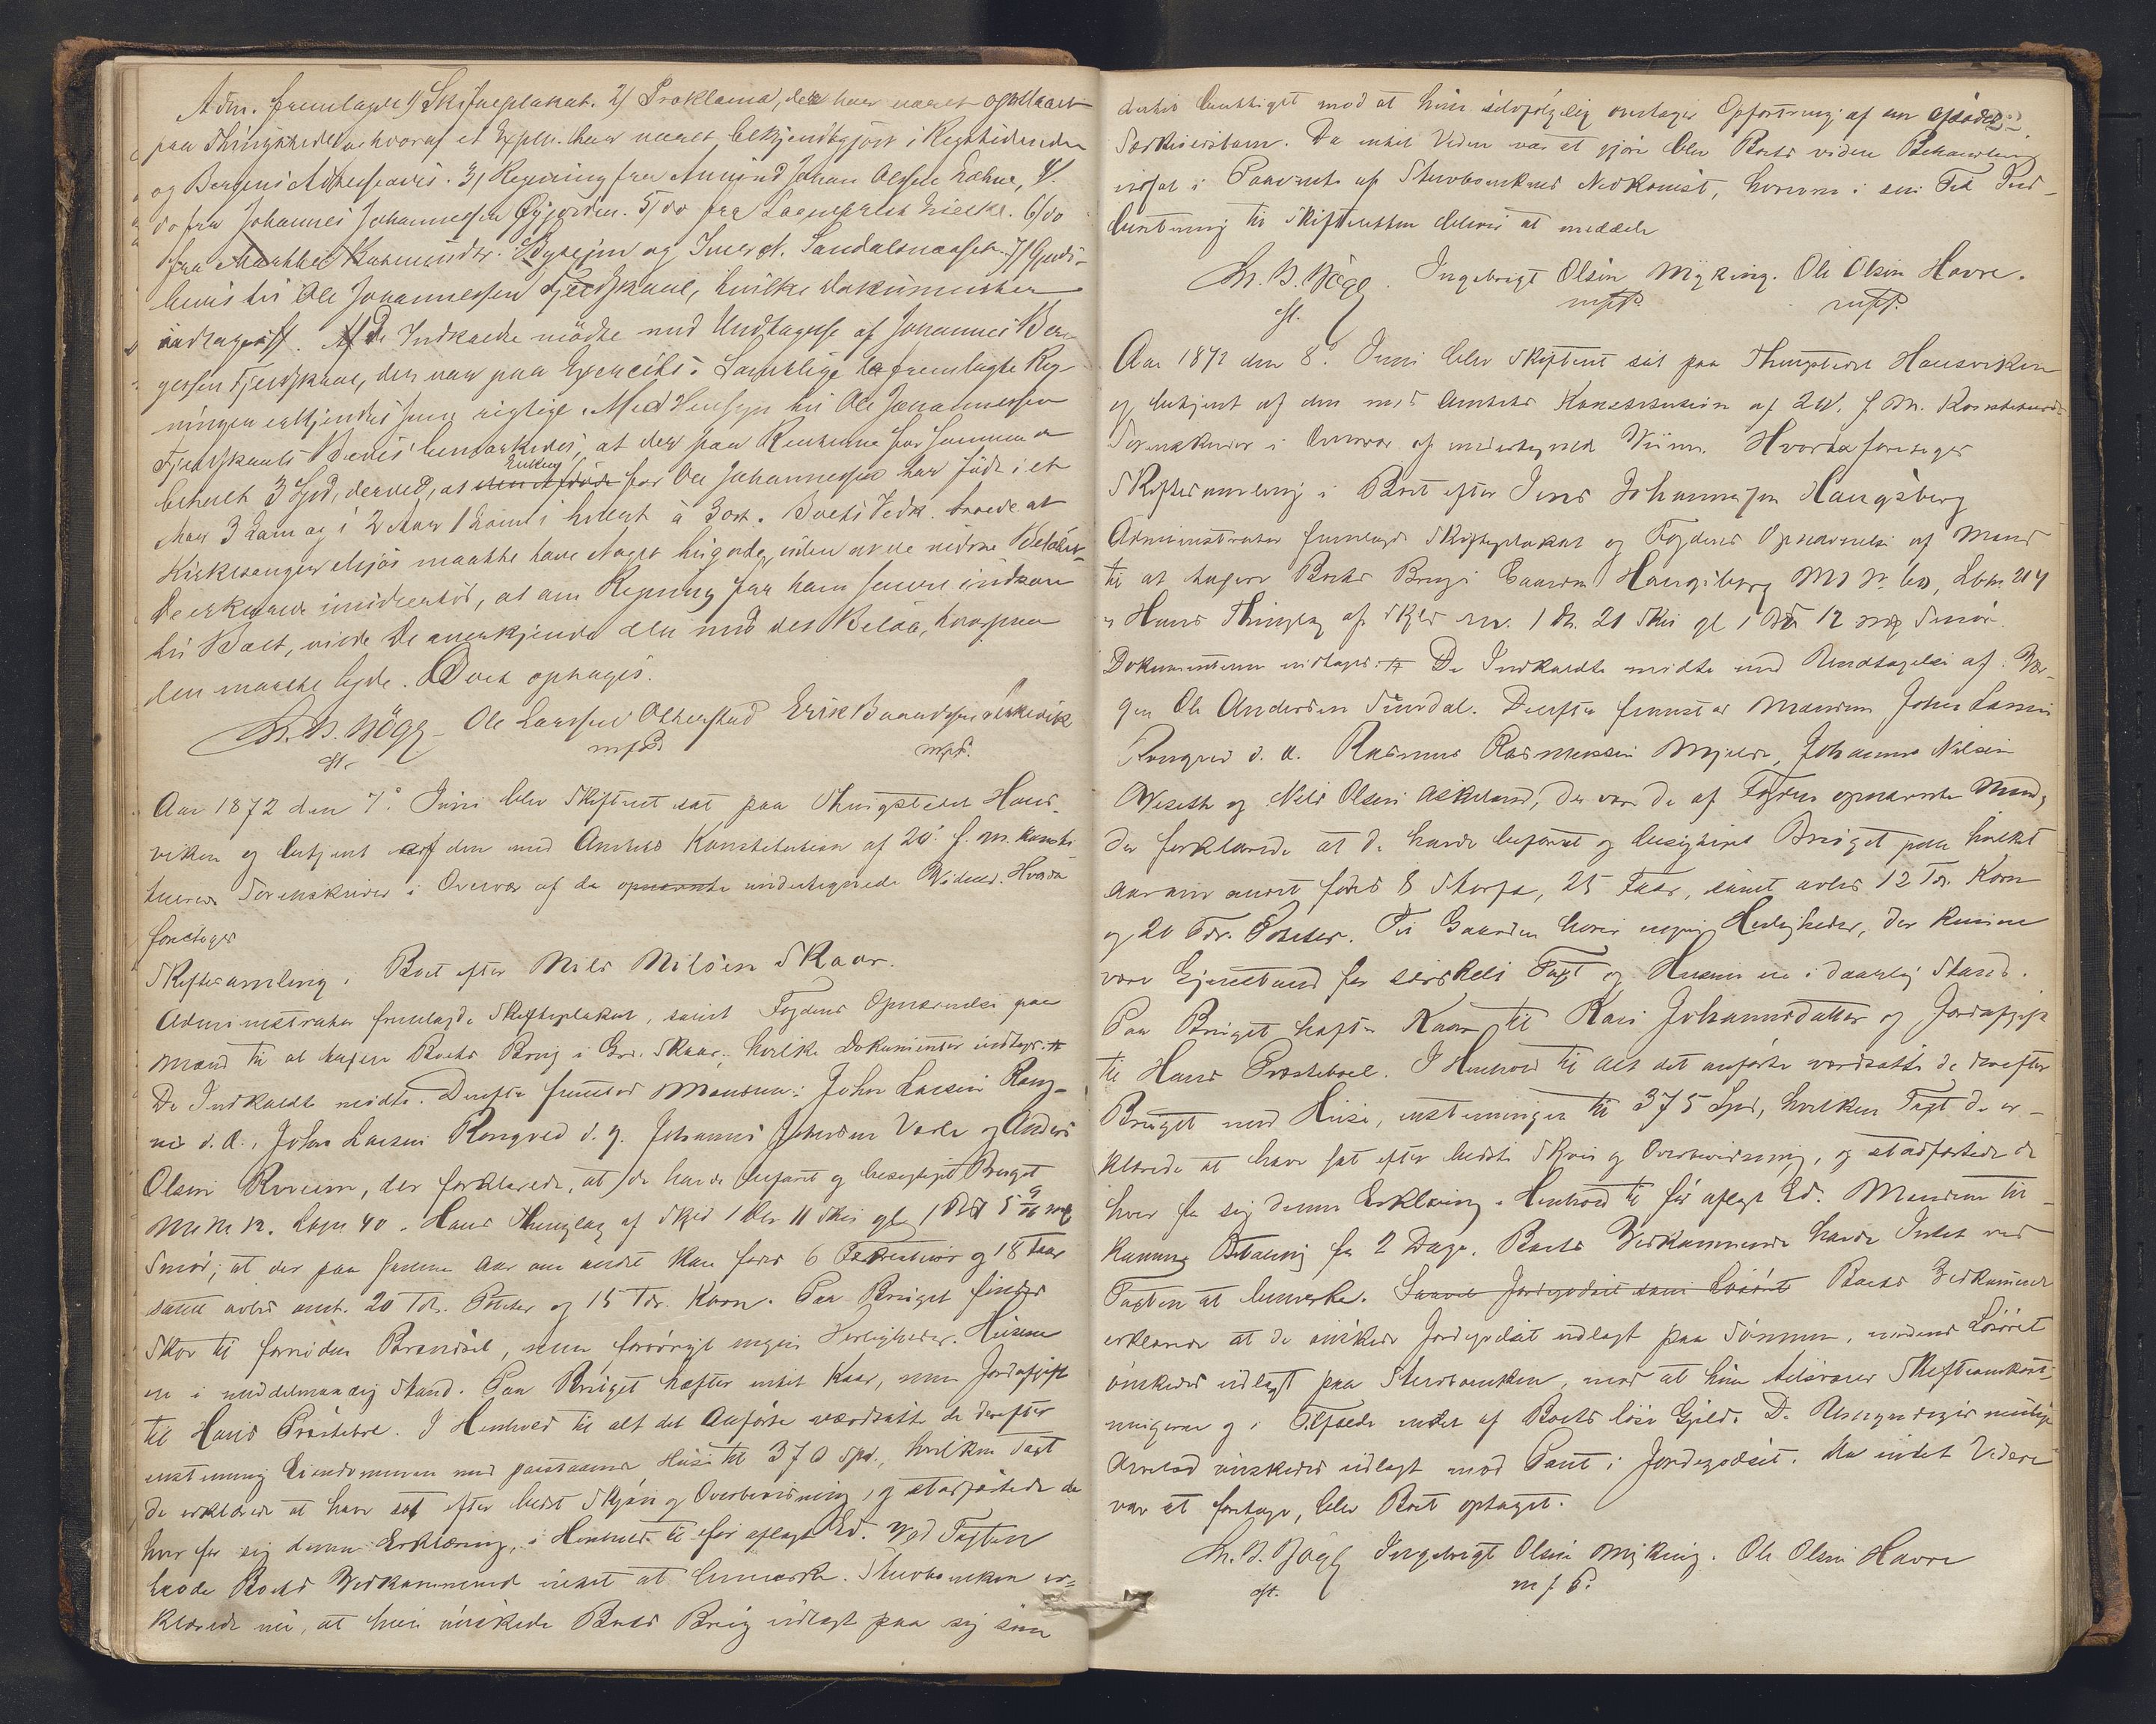 Adm. fremlagde 1/ Skifteplakat. 2/ Proklama, der har været opslaaet
paa Thingstedet og hvoraf et Expl. har været bekjendtgjort i Rigstidenden
og Bergens Adresseavis. 3/ Regning fra Amund Johan Olsen 4/
do fra Johannes Johannessen Øyjorden. 5/ do fra 6/ do
fra og 7/ Gjelds-
bevis til Ole Johannessen Fjeldskaal, hvilke Dokumenter
indtages. Af de Indkaldte mødte med Undtagelse af Johannes Bør-
gessen Fjeldskaal, der var paa Exercits. Samtlige de fremlagte Reg-
ninger erkjendtes som rigtige. Med Hensyn til Ole Johannessen
Fjeldskaals Bevis bemærkedes, at der paa Renterne for Summen er
betalt 3 Spd, derved, at Enken for Ole Johannessen har født i et
Aar 3 Lam og i 2 Aar 1 Lam i hvert à 3 ort. Boets Vedk. troede at
Kirkesanger maatte have Noget tilgode, uden at de vidste Beløbet.
De erklærede imidlertid, at om Regning fra ham senere indkom
til Boet, vilde De anerkjende den med det Beløb, hvorpaa
den maatte lyde. Boet optages.
Chr. D. Bøgg Ole Larssen Olderstad Erik
cst. mfP mfP.
Aar 1872 den 7de Juni blev Skifteret sat paa Thingstedet Haus-
viken og betjent af den med Amtets Konstitution af 20de f. M. konsti-
tuerede Sorenskriver i Overvær af de opnævnte undertegnede Vidner. Hvorda
foretoges
Skiftesamling i Boet efter Nils Nilsen Skaar.
Administrator fremlagde Skifteplakat, samt Fogdens Opnævnelse paa
Mænd til at taxere Boets Brug i Grd. Skaar, hvilke Dokumenter indtages.
De Indkaldte mødte. Derefter fremstod Mændene: Johan Larsen Rong-
ve d. æ., Johan Larsen Rongved d. y. Johannes Johnsen Varle og Anders
Olsen Revem, der forklarede, at de havde befaret og besigtiget Bruget
Mt No 12. Løpn 40. Haus Thinglag af Skyld 1 Dlr 11 Skil gl. 1 Pd 5 mk
Smør; at der paa samme Aar om andet kan fødes 6 Storfæ og 18 Faar
samt avles omt. 20 Tdr. Poteter og 15 Tdr. Korn. Paa Bruget findes
Skov til fornøden Brændsel, men forøvrigt ingen Herligheder. Husene
ere i middelmaadig Stand. Paa Bruget hefter intet Kaar, men Jordafgift
til Haus Præstebol. I Henhold til alt det Anførte værdsatte de derefter
enstemmig Eiendommen med paastaaende Huse til 370 Spd., hvilken Taxt
de erklærede at have sat efter bedste Skjøn og Overbevisning, og stadfæstede de
hver for sig denne Erklæring, i Henhold til før aflagt Ed. Ved Taxten
havde Boets Vedkommende intet at bemærke. Stervboenken er-
klærede nu, at hun ønskede Boets Brug udlagt paa sig som
dertil berettiget mod at hun selvfølgelig overtager Opfostring af
Særkuldsbarn. Da intet Videre var at gjøre blev Boets videre Behandling
udsat i Paavente af Stervboenkens Nedkomst, hvorom i sin Tid Ind-
beretning til Skifteretten bliver at meddele
Chr. D. Bøgg. Ingebrigt Olsen Myking. Ole Olsen Havre.
cst. mfP. mfP.
Aar 1872 den 8de Juni blev Skifteret sat paa Thingstedet Hausviken
og betjent af den med Amtets Konstitution af 20de f. M. Konstituerede
Sorenskriver i Overvær af undertegnede Vidner. Hvorda foretoges
Skiftesamling i Boet efter Jens Johannessen Haugsberg
Administrator fremlagde Skifteplakat og Fogdens Opnævnelse af Mænd
til at taxere Boets Brug i Gaarden Haugsberg Mt No 60, Løbn 214
i Haus Thinglag af Skyld rev. 1 Dl. 21 Skil gl 1 Pd 12 mk Smør.
Dokumenterne indtages. De Indkaldte mødte med Undtagelse af Vær-
gen Ole Andersen Derefter fremstod Mændene Johan Larsen
Rongved d. æ. Rasmus Rasmussen Mjelde, Johannes Nilsen
Weseth og Nils Olsen Askeland, der var de af Fogden opnævnte Mænd,
der forklarede at de havde befaret og besigtiget Bruget paa hvilket
Aar om andet fødes 8 Storfæ, 25 Faar, samt avles 12 Tdr. Korn
og 20 Tdr. Poteter. Til Gaarden hører ingen Herligheder, der kunne
være Gjenstand for særskilt Taxt og Husene ere i daarlig Stand.
Paa Bruget hefter Kaar til Kari Johannesdatter og Jordafgift
til Haus Præstebol. I Henhold til alt det anførte værdsatte de derefter
Bruget med Huse, enstemmigen til 375 Spd, hvilken Taxt de er-
klærede at have sat efter bedste Skjøn og Overbevisning, og stadfæstede de
hver for sig denne Erklæring i Henhold til før aflagt Ed. Mændene til-
kommer Betaling for 2 Dage. Boets Vedkommende havde Intet ved
Taxten at bemærke. Saavel Jordegodset som Løsøret Boets Vedkommende
erklærede at de ønskede Jordegodset udlagt paa Sønnen, medens Løsøret
ønskedes udlagt paa Stervboenken, mod at hun tilsvarer Skifteomkost-
ningerne og i Tilfælde andet af Boets løse Gjæld. De Umyndiges mulige
Arvelod ønskedes udlagt mod Pant i Jordegodset. Da intet Videre
var at foretage, blev Boet optaget.
Chr. D. Bøgg Ingebrigt Olsen Myking. Ole Olsen Havre
cst. m f P.